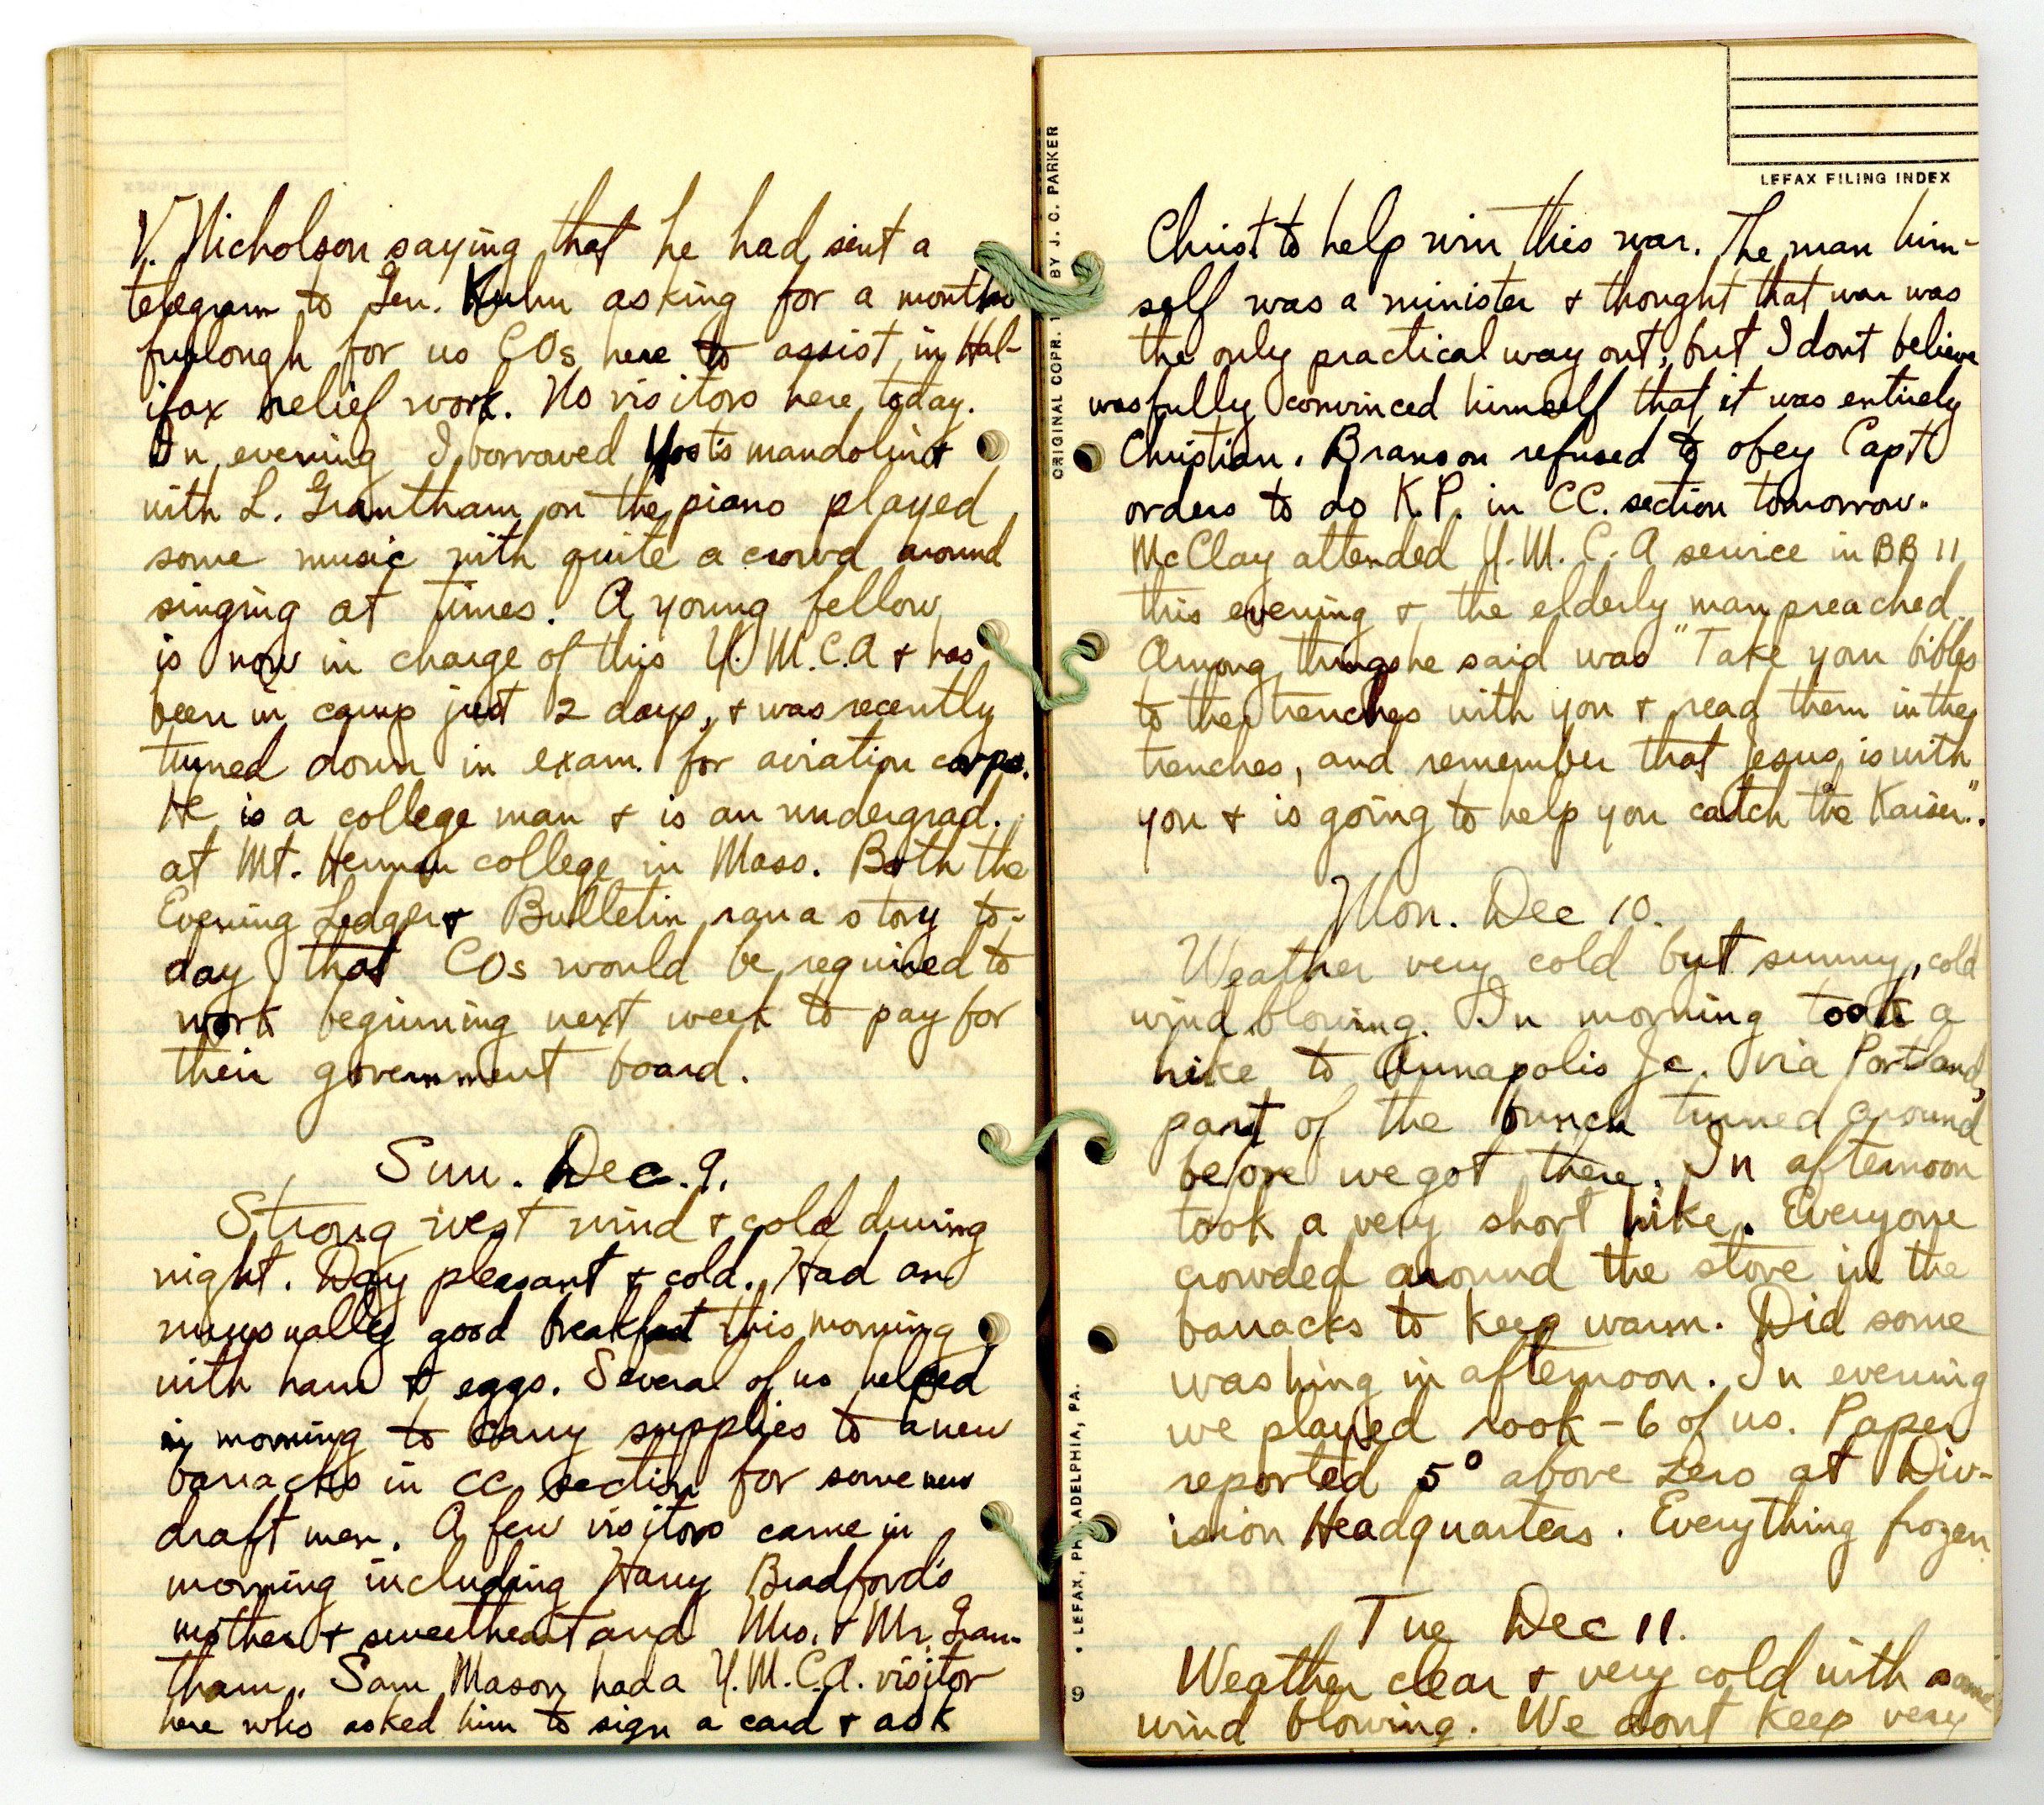 V. Nicholson saying that he had sent a
telegram to Gen. Kuhn asking for a months
furlough for us COs here to assist in Hal-
ifax relief work. No visitors here today.
In evening I borrowed Yosts mandolin &
with L. Grantham on the piano played
some music with quite a crowd around
singing at times. A young fellow
is now in charge of this Y.M.C.A & has
been in camp just 2 days, & was recently
turned down in exam. for aviation corps.
He is a college man & is an undergrad.
at Mt. Herman college in Mass. Both the
Evening Ledger & Bulletin ran a story to-
day that COs would be required to
work beginning next week to pay for
their government board.
Sun. Dec. 9.
Strong west wind & cold during
night. Day pleasant & cold. Had an
unusually good breakfast this morning
with ham & eggs. Several of us helped
in morning to carry supplies to a new
barracks in CC section for some new
draft men. A few visitors came in
morning including Harry Bradford's
mother & sweetheart and Mrs. & Mr. Gran-
tham. Sam Mason had a Y.M.C.A. visitor
here who asked him to sign a card & ask
LEFAX FILING INDEX
Christ to help win this war. The man him-
self was a minister & thought that war was
the only practical way out, but I dont believe
was fully convinced himself that it was entirely
Christian. Branson refused to obey Capt
orders to do K.P. in CC. section tomorrow.
McClay attended Y.M.C.A service in BB 11
this evening & the elderly man preached.
Among things he said was "Take your bibles
to the trenches with you & read them in the
trenches, and remember that Jesus is with
you & is going to help you catch the Kaiser".
Mon. Dec 10.
Weather very cold but sunny, cold
wind blowing. In morning took a
hike to Annapolis Jc. via Portland,
part of the bunch turned around
before we got there. In afternoon
took a very short hike. Everyone
crowded around the stove in the
barracks to keep warm. Did some
washing in afternoon. In evening
we played rook - 6 of us. Paper
reported 5° above zero at Div-
ision Headquarters. Everything frozen.
Tue Dec 11.
Weather clear & very cold with some
wind blowing. We dont keep very
ORIGINAL COPR. 1 BY J. C. PARKER
• LEFAX, PHILADELPHIA, PA.
9